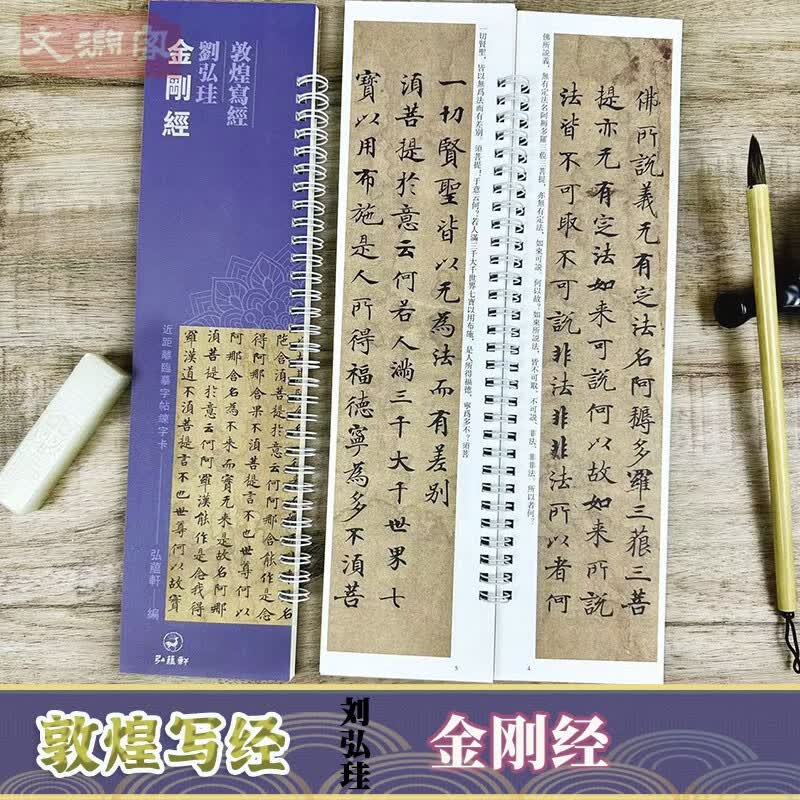 文渊阁
敦煌寫經
劉弘珪
金剛經
近距離臨摹字帖練字卡
弘蘊軒 編
得阿那含果不須菩提言不也世尊何以
阿那含名為不来而實无来是故名阿那
須菩提於意云何阿羅漢能作是念我得
羅漢道不須菩提言不也世尊何以故實
弘蘊軒
佛所說義，無有定法名阿耨多羅三藐三菩提，亦無有定法，如來可說。何以故？如來所說法，皆不可取、不可說、非法、非非法。所以者何？
佛所說義无有定法名阿耨多羅三藐三菩
提亦无有定法如来可說何以故如来所說
法皆不可取不可說非法非非法所以者何
4
一切賢聖，皆以無爲法而有差別。須菩提！于意云何？若人滿三千大千世界七寶以用布施，是人所得福德，寧爲多不？須菩
一切賢聖皆以无為法而有差別
須菩提於意云何若人滿三千大千世界七
寶以用布施是人所得福德寧為多不須菩
5
敦煌写经
刘弘珪
金刚经